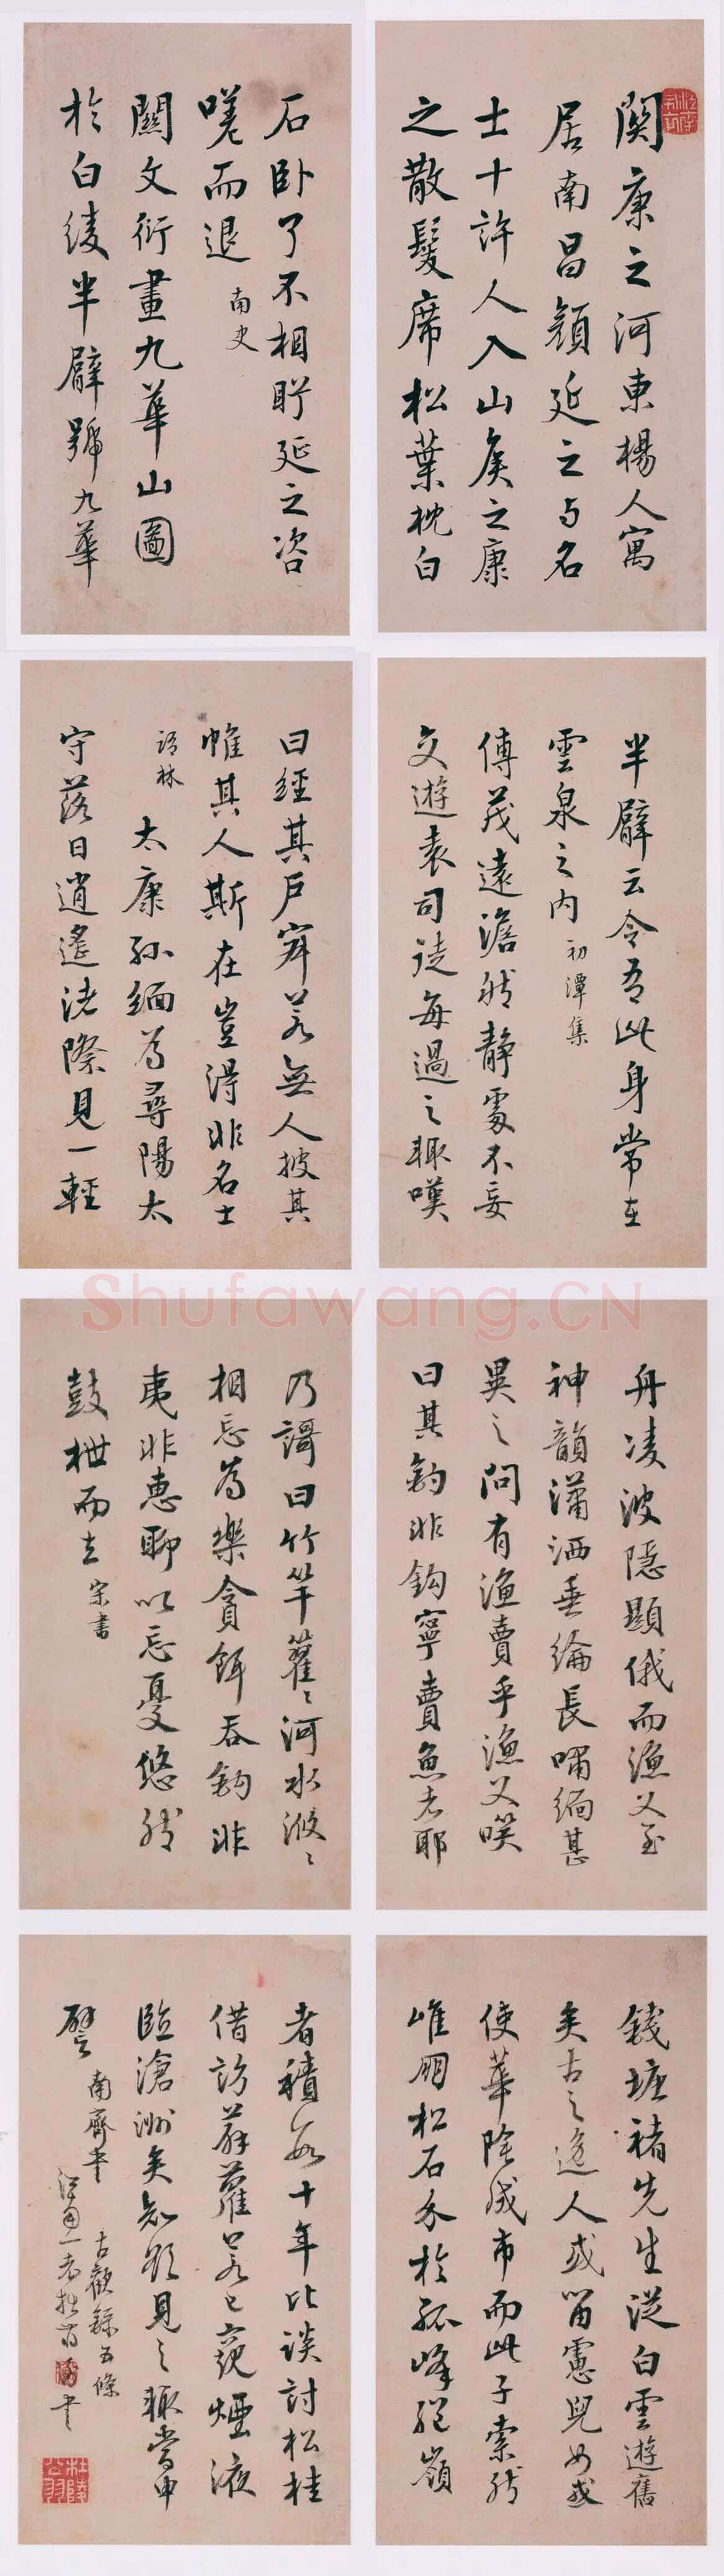 關康之河東楊人寓
居南昌顏延之与名
士十許人入山矦之康
之散髮席松葉枕白
石卧了不相眝延之咨
嗟而退 南史
關文衍畫九華山圖
於白綾半臂號九華
半臂云令吾此身常在
雲泉之内 初潭集
傅茂遠澹然靜處不妄
交遊袁司徒每過之輒嘆
曰經其戶寂若無人披其
帷其人斯在豈得非名士
語林 太康孫緬為尋陽太
守落日逍遙渚際見一輕
舟凌波隱顯俄而漁父至
神韻瀟洒垂綸長嘯緬甚
異之問有漁賣乎漁父嘆
曰其釣非鈎寧賣魚者耶
乃謌曰竹竿籊〻河水滺〻
相忘為樂貪餌吞鈎非
夷非惠聊以忘憂悠然
鼓枻而去 宋書
錢塘褚先生從白雲遊舊
矣古之逸人或留慮兒女或
使華陰成市而此子索然
唯朋松石介於孤峰絕嶺
者積數十年比談討松桂
借訪薜蘿若已窺煙液
臨滄洲矣知欲見之輒當申
譬 南齊書 古觀錄五條
杜陵
公羽
Shufawang.CN